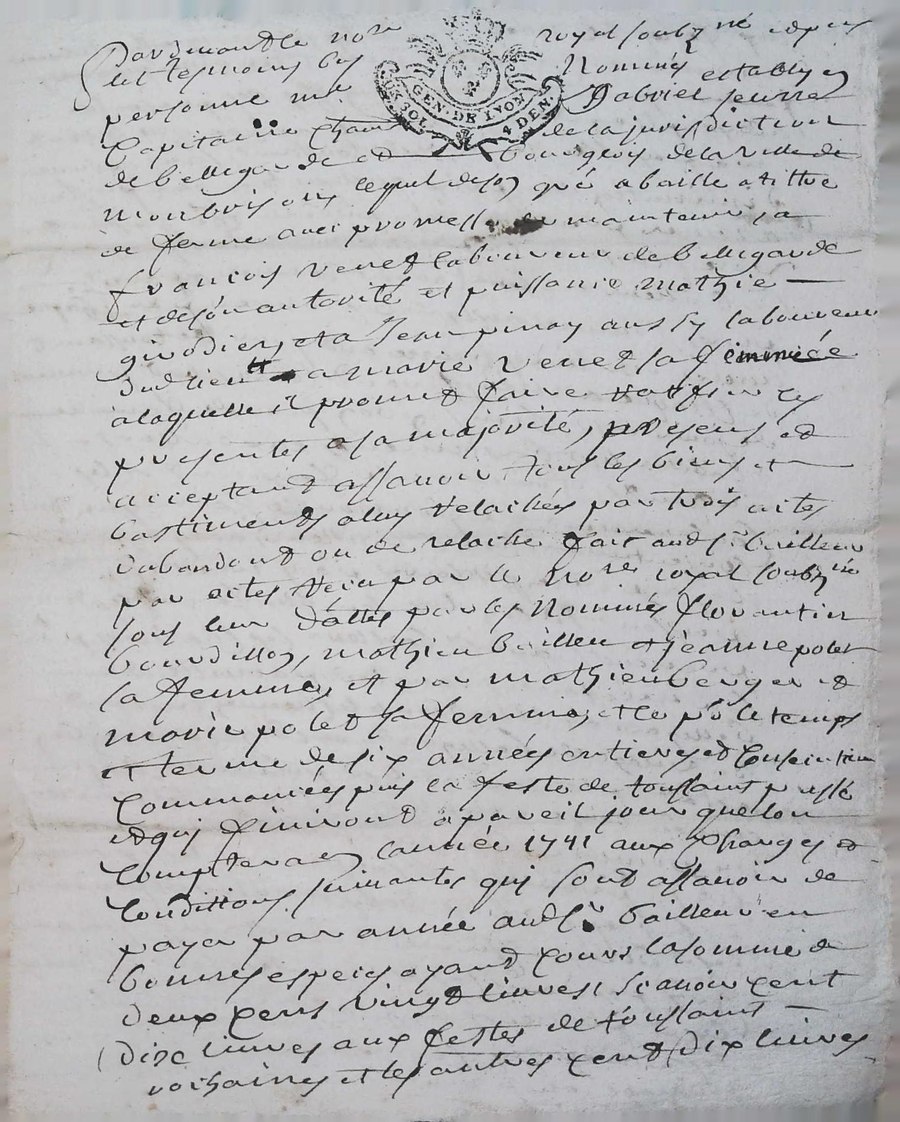 Pardevant le nore royal soubzné et pns
les tesmoins bas Nommés
GEN. DE LYON
3 SOL 4 DEN.
personne me establis
Capitaine Gabriel
de la jurisdiction
de bellegarde et bourgeois de la ville de
monbrison, lequel de son gré a baillé a tiltre
de ferme avec promesse de maintenir, a
françois venet laboureur de bellegarde
et de son autorité et puissance mathie
girodier, et a Jean pinay aussy laboureur
dud lieu et a marie venet sa femme
a laquelle il promet faire ratifier ces
presentes a sa majorité, presens et
acceptant assavoir tous les biens et
bastiments a luy relachés par trois actes
d'abandont ou de relache fait aud sr bailleur
par actes receu par le nore royal soubzné
sous leur dattes par les Nommés florantin
bourdillon, mathieu et jeanne polet
sa femme, et par mathieu berger et
marie polet sa femme, et ce pr le temps
et terme de six années entieres et consecutives
Commancées puis la feste de toussaint passé
et qui finiront a pareil jour que l'on
Comptera en l'année 1741 aux Charges et
Conditions suivantes qui sont assavoir de
payer par année aud sr bailleur en
bonnes especes ayant cours la somme de
deux cens vingt livres, scavoir cent
dix livres aux festes de toussaint
rochaines et les autres cent dix livres